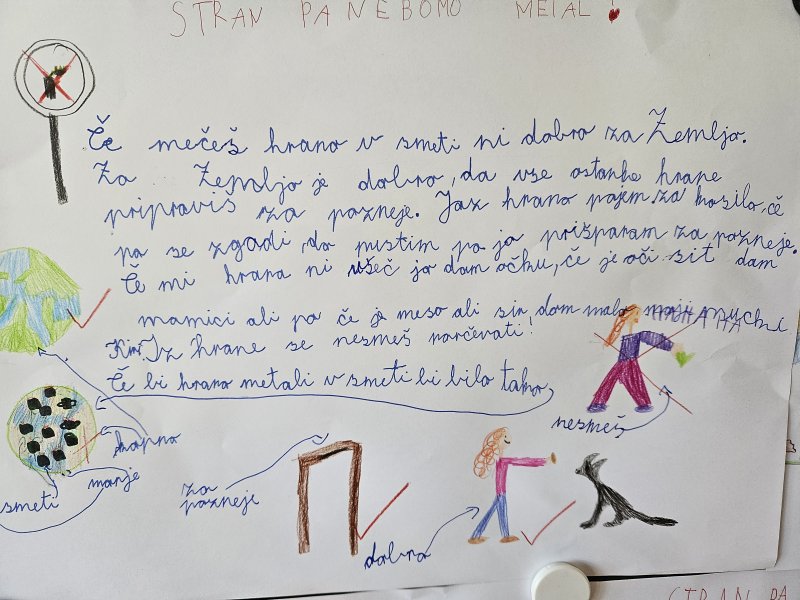 STRAN PA NEBOMO METAL!
Če mečeš hrano v smeti ni dobro za Zemljo.
Za Zemljo je dobro, da vse ostanke hrane
pripraviš za pozneje. Jaz hrano pojem za kosilo, če
pa se zgodi, da pustim pa jo prišparam za pozneje.
Če mi hrana ni všeč jo dam očku, če je oči sit dam
mamici ali pa če je meso ali sir dam malo moji muchi
Kiri. Iz hrane se nesmeš norčevati!
HAHAHA
Če bi hrano metali v smeti bi bilo tako,
nesmeš
kapno
manje
smeti
za
pozneje
dobro
STRAN PA